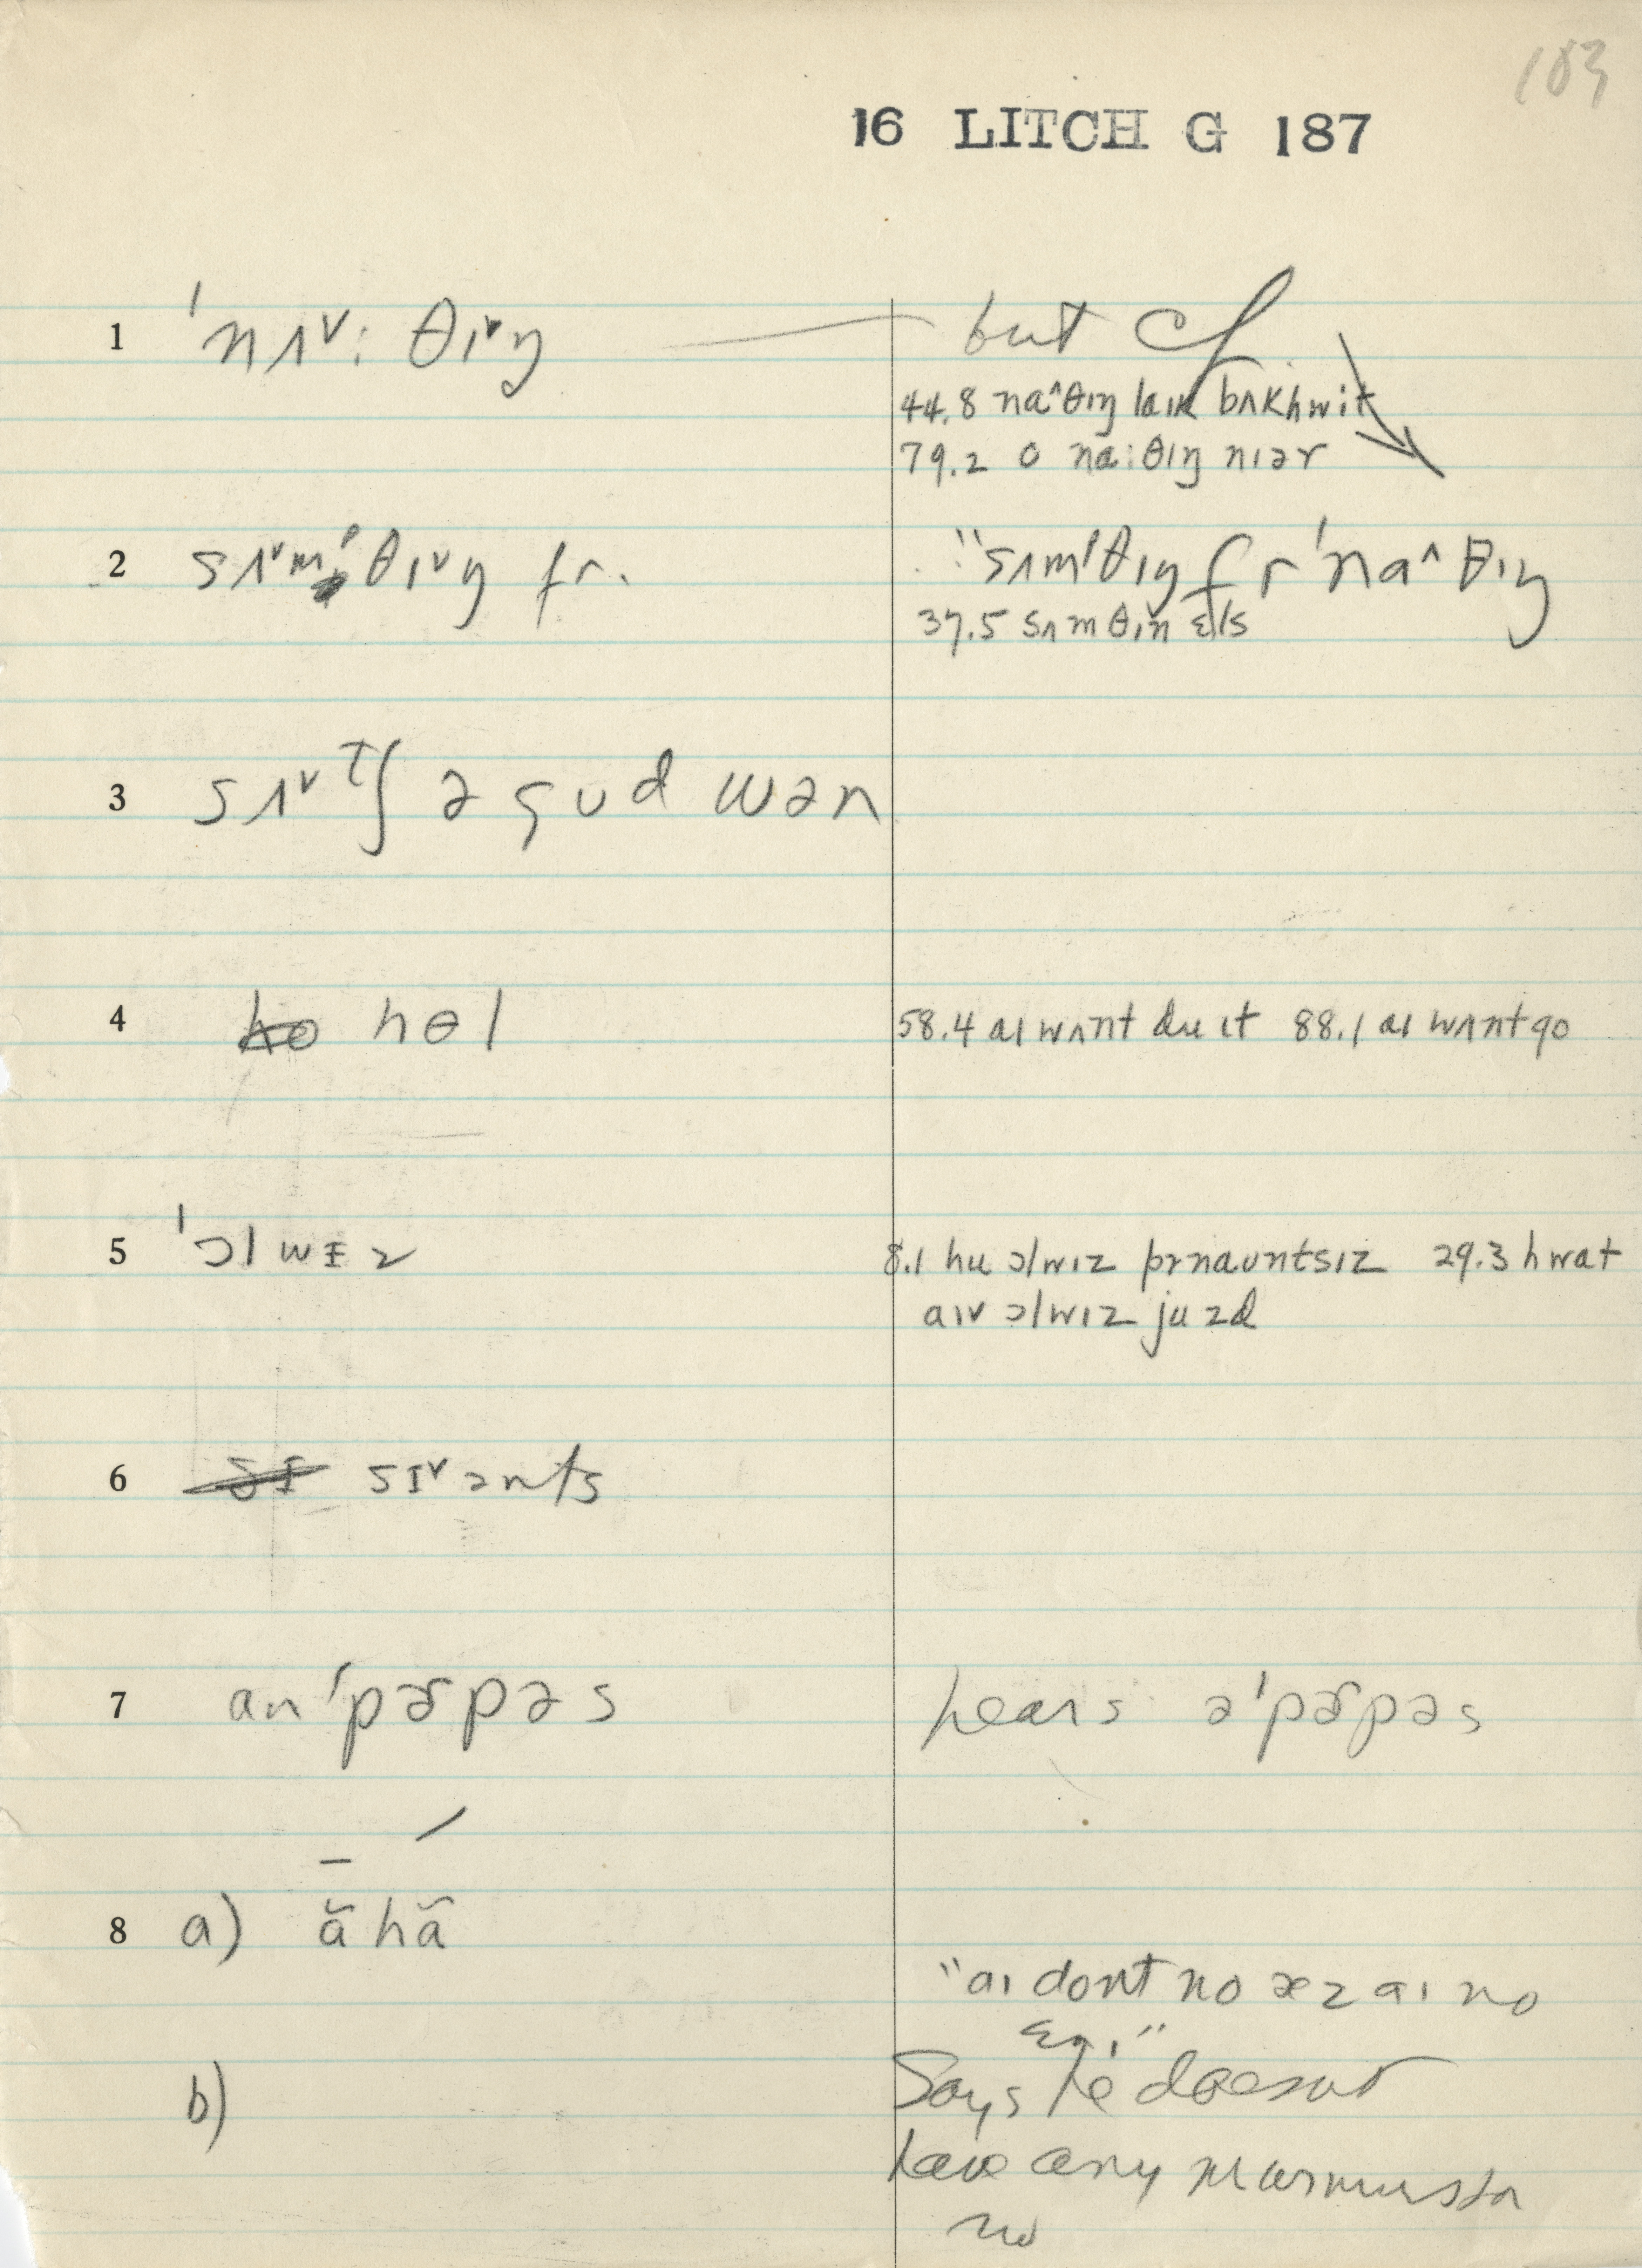 183
16 LITCH G 187
1 ˈnʌ˅: θɪ˅ŋ but cf.
44.8 na^θɪŋ laɪk bʌkhwit
79.2 o na:θɪŋ nɪər
2 sʌ˅mˈθɪ˅ŋ fr. "sʌmˈθɪŋ fr ˈna^θɪŋ
37.5 sʌmθɪn ɛls
3 sʌ˅tʃ ə gud wən
4 ho hɵl 58.4 aɪ wʌnt du ɪt 88.1 aɪ wʌnt go
5 ˈɔlwɪz 8.1 hu ɔlwɪz prnauntsɪz 29.3 hwat
aɪv ɔlwɪz juzd
6 sɪ sɪ˅ənts
7 anˈpɚpəs hears əˈpɚpəs
8 a) ã hã
"aɪ dont no æz aɪ no
b) Says he doesnt
have any
no